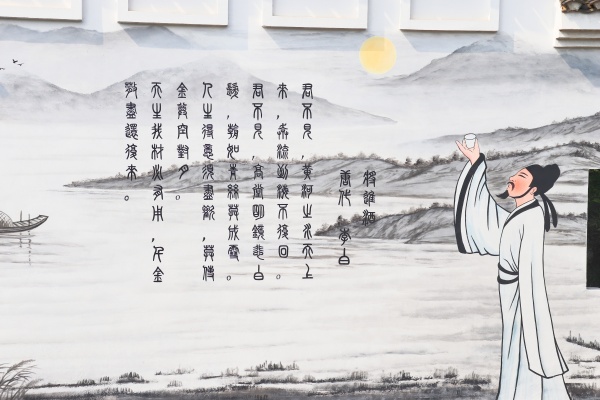 將進酒
唐代 李白
君不見,黃河之水天上
來,奔流到海不復回。
君不見,高堂明鏡悲白
髮,朝如青絲暮成雪。
人生得意須盡歡,莫使
金尊空對月。
天生我材必有用,千金
散盡還復來。